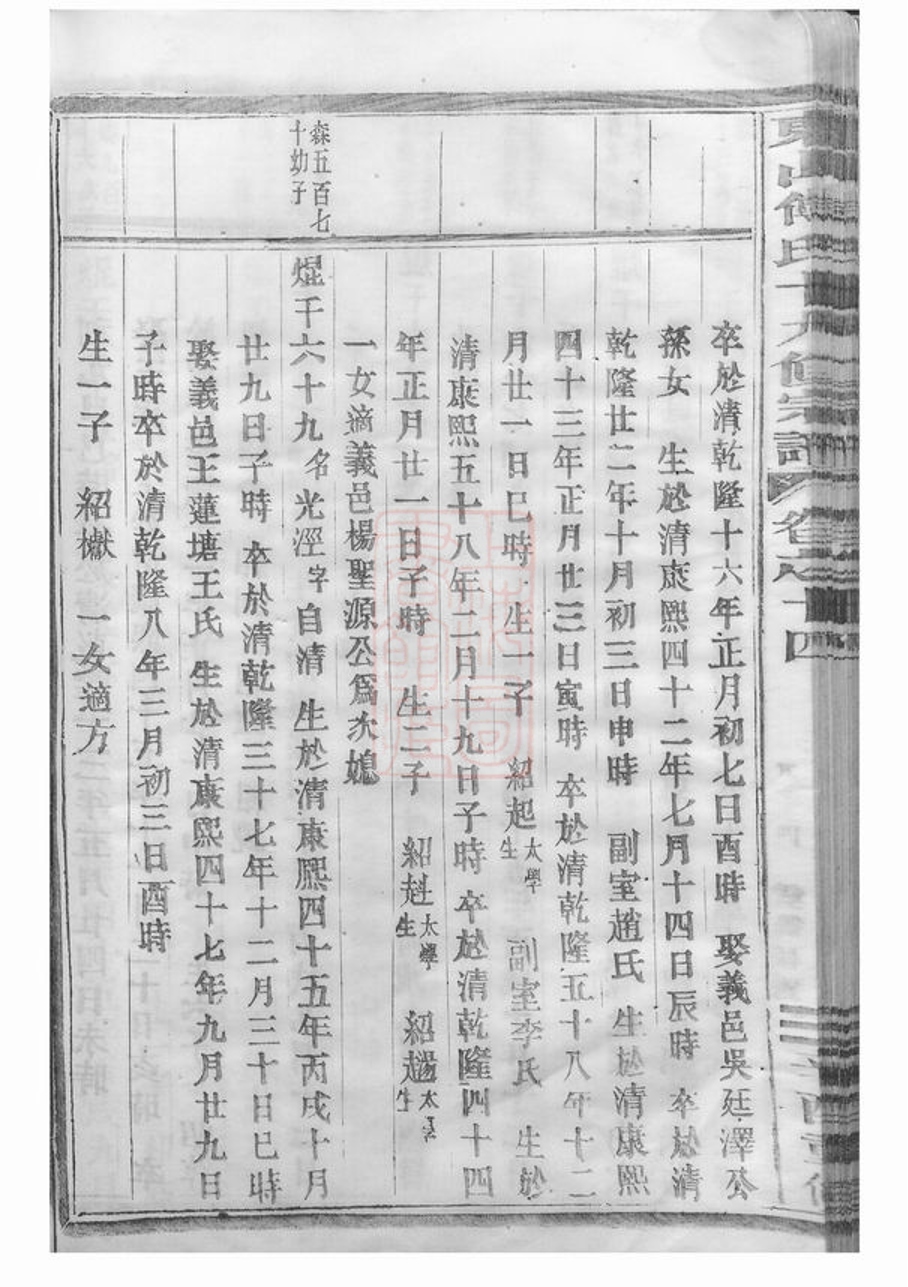 東山傅氏十九修宗譜 卷之十四
辛酉重修
卒於清乾隆十六年正月初七日酉時 娶義邑吳廷澤公
孫女 生於清康熙四十二年七月十四日辰時 卒於清
乾隆廿二年十月初三日申時 副室趙氏 生於清康熙
四十三年正月廿三日寅時 卒於清乾隆五十八年十二
月廿一日巳時 生一子 紹起太學生 副室李氏 生於
清康熙五十八年二月十九日子時 卒於清乾隆四十四
年正月廿一日子時 生二子 紹赳太學生 紹趟太學生
一女適義邑楊聖源公爲次媳
森五百七十幼子
焜千六十九名光涇字自清 生於清康熙四十五年丙戌十月
廿九日子時 卒於清乾隆三十七年十二月三十日巳時
娶義邑王蓮塘王氏 生於清康熙四十七年九月廿九日
子時卒於清乾隆八年三月初三日酉時
生一子 紹櫞 一女適方